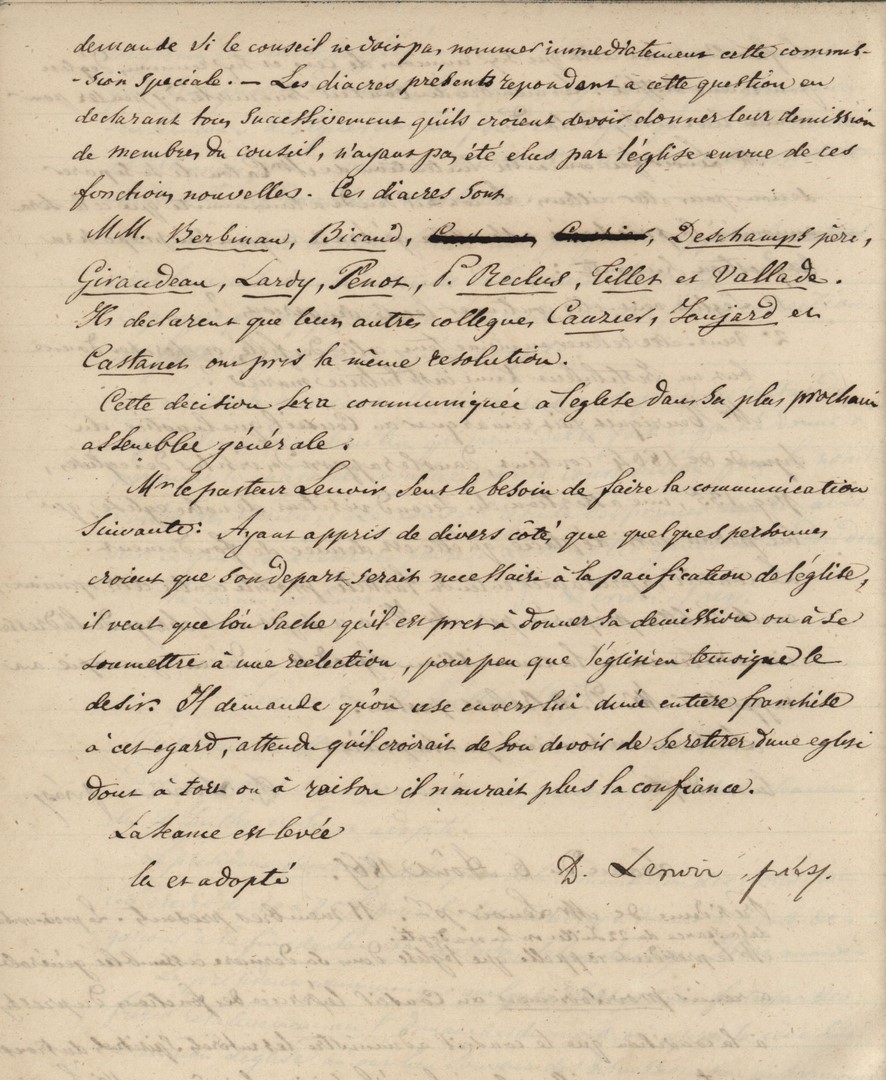 demande si le conseil ne doit pas nommer immediatement cette commis-
-sion spéciale. — Les diacres présents repondent à cette question en
declarant tous successivement qu'ils croient devoir donner leur demission
de membres du conseil, n'ayant pas été elus par l'église en vue de ces
fonctions nouvelles. Ces diacres sont
MM. Berbinau, Bicaud, Deschamps père,
Giraudeau, Lardy, Penot, P. Reclus, Tillet et Vallade.
Ils declarent que leurs autres collegues Cauzier, Joujard et
Castanet ont pris la même resolution.
Cette decision sera communiquée à l'église dans sa plus prochain
assemblée générale.
Mr le pasteur Lenoir sent le besoin de faire la communication
suivante: Ayant appris de divers côtés que quelques personnes
croient que son depart serait necessaire à la pacification de l'église,
il veut que l'on sache qu'il est pret à donner sa demission ou à se
soumettre à une reelection, pour peu que l'église en temoigne le
desir. Il demande qu'on use envers lui d'une entiere franchise
à cet egard, attendu qu'il croirait de son devoir de se retirer d'une eglise
dont à tort ou à raison il n'aurait plus la confiance.
La seance est levée
lu et adopté D. Lenoir